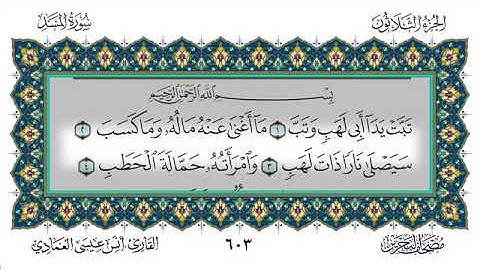 الجزء الثلاثون
سورة المسد
بِسْمِ اللَّهِ الرَّحْمَٰنِ الرَّحِيمِ
تَبَّتْ يَدَا أَبِي لَهَبٍ وَتَبَّ ١ مَا أَغْنَىٰ عَنْهُ مَالُهُ وَمَا كَسَبَ ٢
سَيَصْلَىٰ نَارًا ذَاتَ لَهَبٍ ٣ وَامْرَأَتُهُ حَمَّالَةَ الْحَطَبِ ٤
مصحف البحرين
٦٠٣
القارئ أنس عيسى العمادي